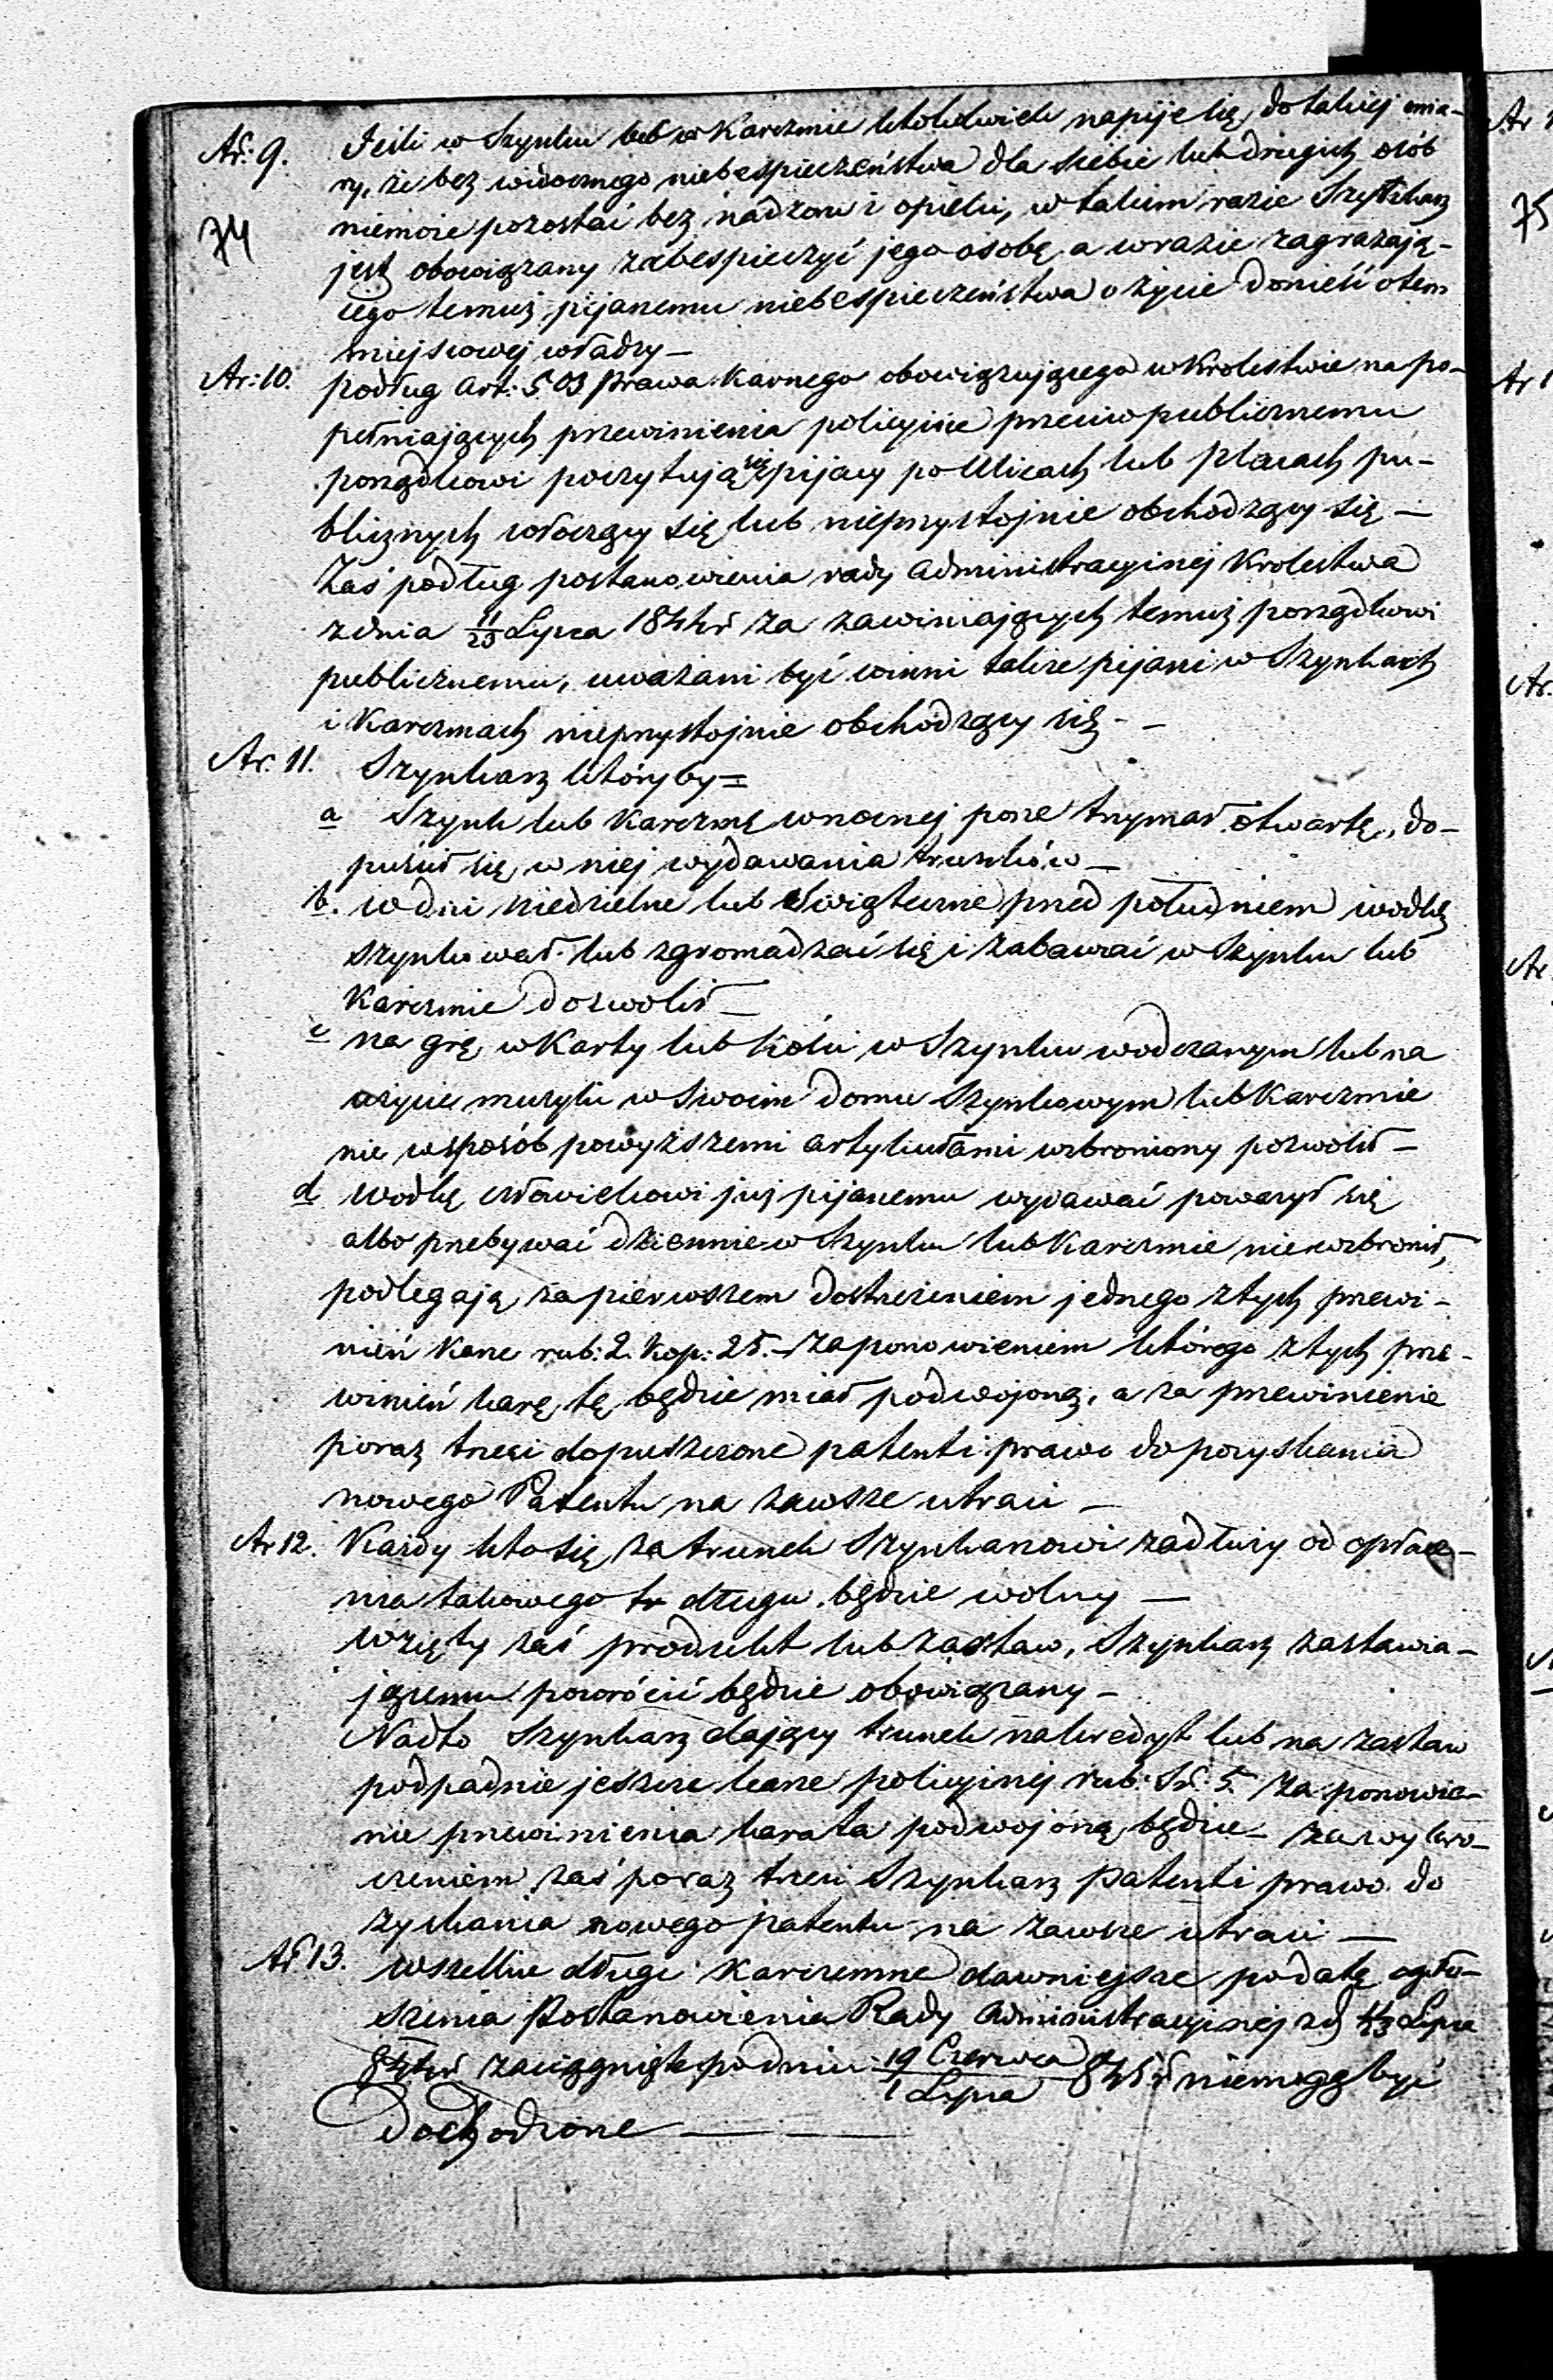 Ar. 9. Jeśli w Szynku lub w Karczmie ktokolwiek napije się do takiej mia-
ry, że bez widocznego niebespieczeństwa dla siebie lub drugich osób
74 niemoże pozostać bez nadzoru i opieki, w takim razie Szynkarz
jest obowiązany zabespieczyć jego osobę, a wrazie zagrażają-
cego temuż pijanemu niebespieczeństwa o życie donieść otem
miejscowej władzy —
Ar: 10. podług Art: 503 Prawa Karnego obowiązującego w Krolestwie na po-
pełniających przewinienia policyine przeciw publicznemu
porządkowi poczytują się pijacy po Ulicach lub placach pu-
blicznych włóczący się lub nieprzystojnie obchodzący się —
Zaś podług postanowienia rady Administracyinej Krolestwa
z dnia 11/23 Lipca 1844r za zawiniających temuż porządkowi
publicznemu, uważani być winni także pijani w Szynkach
i Karczmach nieprzystojnie obchodzący się - —
Ar. 11. Szynkarz któryby =
a Szynk lub Karczmę wnocnej porze trzymał otwartą, do-
puścił się w niej wydawania trunków —
b. w dni niedzielne lub Swiąteczne przed południem wodkę
szynkował lub zgromadzać się i zabawiać w Szynku lub
Karczmie dozwolił —
c na grę w Karty lub kości w Szynku wodczanym lub na
użycie muzyki w Swoim domu Szynkowym lub Karczmie
nie wsposób powyższemi artykułami wzbroniony pozwolił —
d wodkę człowiekowi już pijanemu wydawać poważył się
albo przebywać dziennie w Szynku lub Karczmie niewzbronił,
podlegają za pierwszem dostrzeżeniem jednego ztych przewi-
nień Karze rub: 2. Kop: 25. — za ponowieniem którego ztych prze-
winień karę tę będzie miał podwojoną, a za przewinienie
poraz trzeci dopuszczone patent i prawo do pozyskania
nowego Patentu na zawsze utraci —
Ar 12. Każdy kto się za trunek Szynkarzowi zadłuży od opłace-
nia takowego długu będzie wolny —
Wzięty zaś produkt lub zastaw, Szynkarz zastawia-
jącemu powrócić będzie obowiązany —
Nadto Szynkarz dający trunek nakredyt lub na zastaw
podpadnie jeszcze karze policyinej rub: Sr: 5. za ponowie-
nie przewinienia kara ta podwojoną będzie — za wykro-
czeniem zaś poraz trzeci Szynkarz patent i prawo do
zyskania nowego patentu na zawsze utraci —
Ar 13. Wszelkie długi Karczemne dawniejsze podatę ogło-
szenia Postanowienia Rady Administracyinej zd 11/23 Lipca
844r zaciągnięte podniu 19 Czerwca/1 Lipca 845r niemogą być
dochodzone — —
Ar
75
Ar
Ar.
Ar.